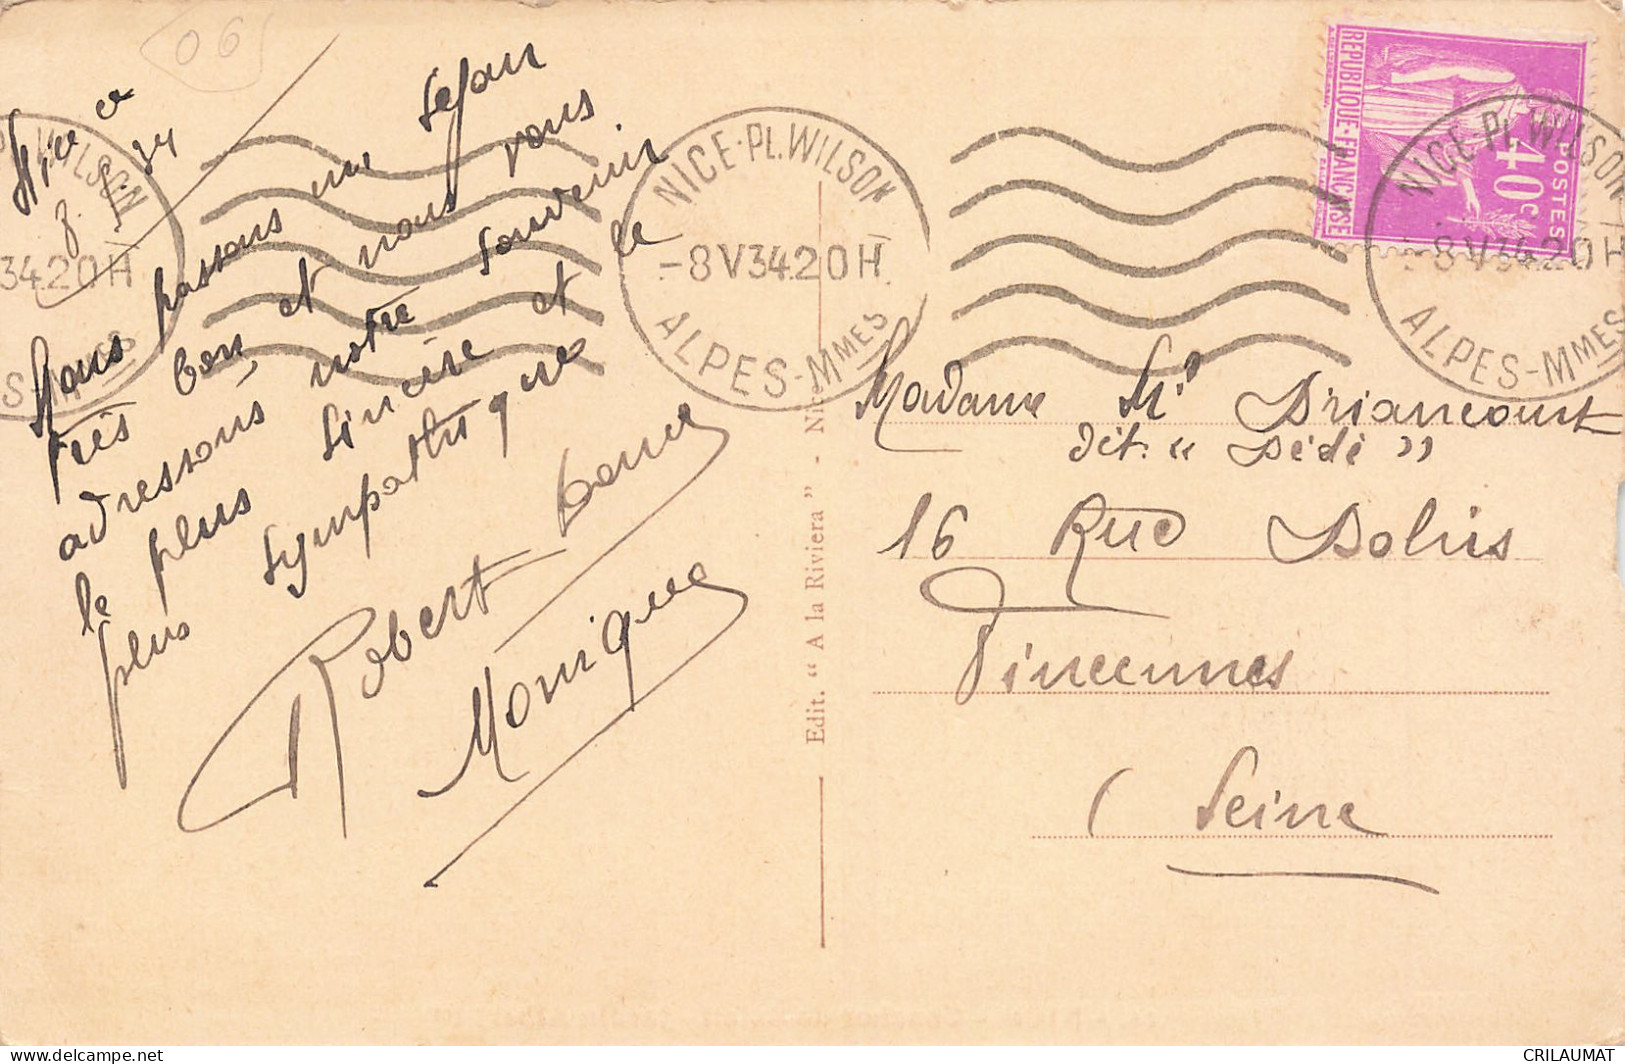 06
Nice
8.5.34
Nous passons un séjour
très bon, et nous vous
adressons notre souvenir
le plus sincère et le
plus sympathique
Robert
Monique
NICE-PL.WILSON
-8 V34.20H
ALPES-MMES
NICE-PL.WILSON
-8 V34.20H
ALPES-MMES
34.20H
REPUBLIQUE-FRANÇAISE
40c
POSTES
Edit. “ A la Riviera ” - Nice
Madame Driancourt
dit. “ Dédé ”
16 Rue Dohis
Vincennes
( Seine
CRILAUMAT